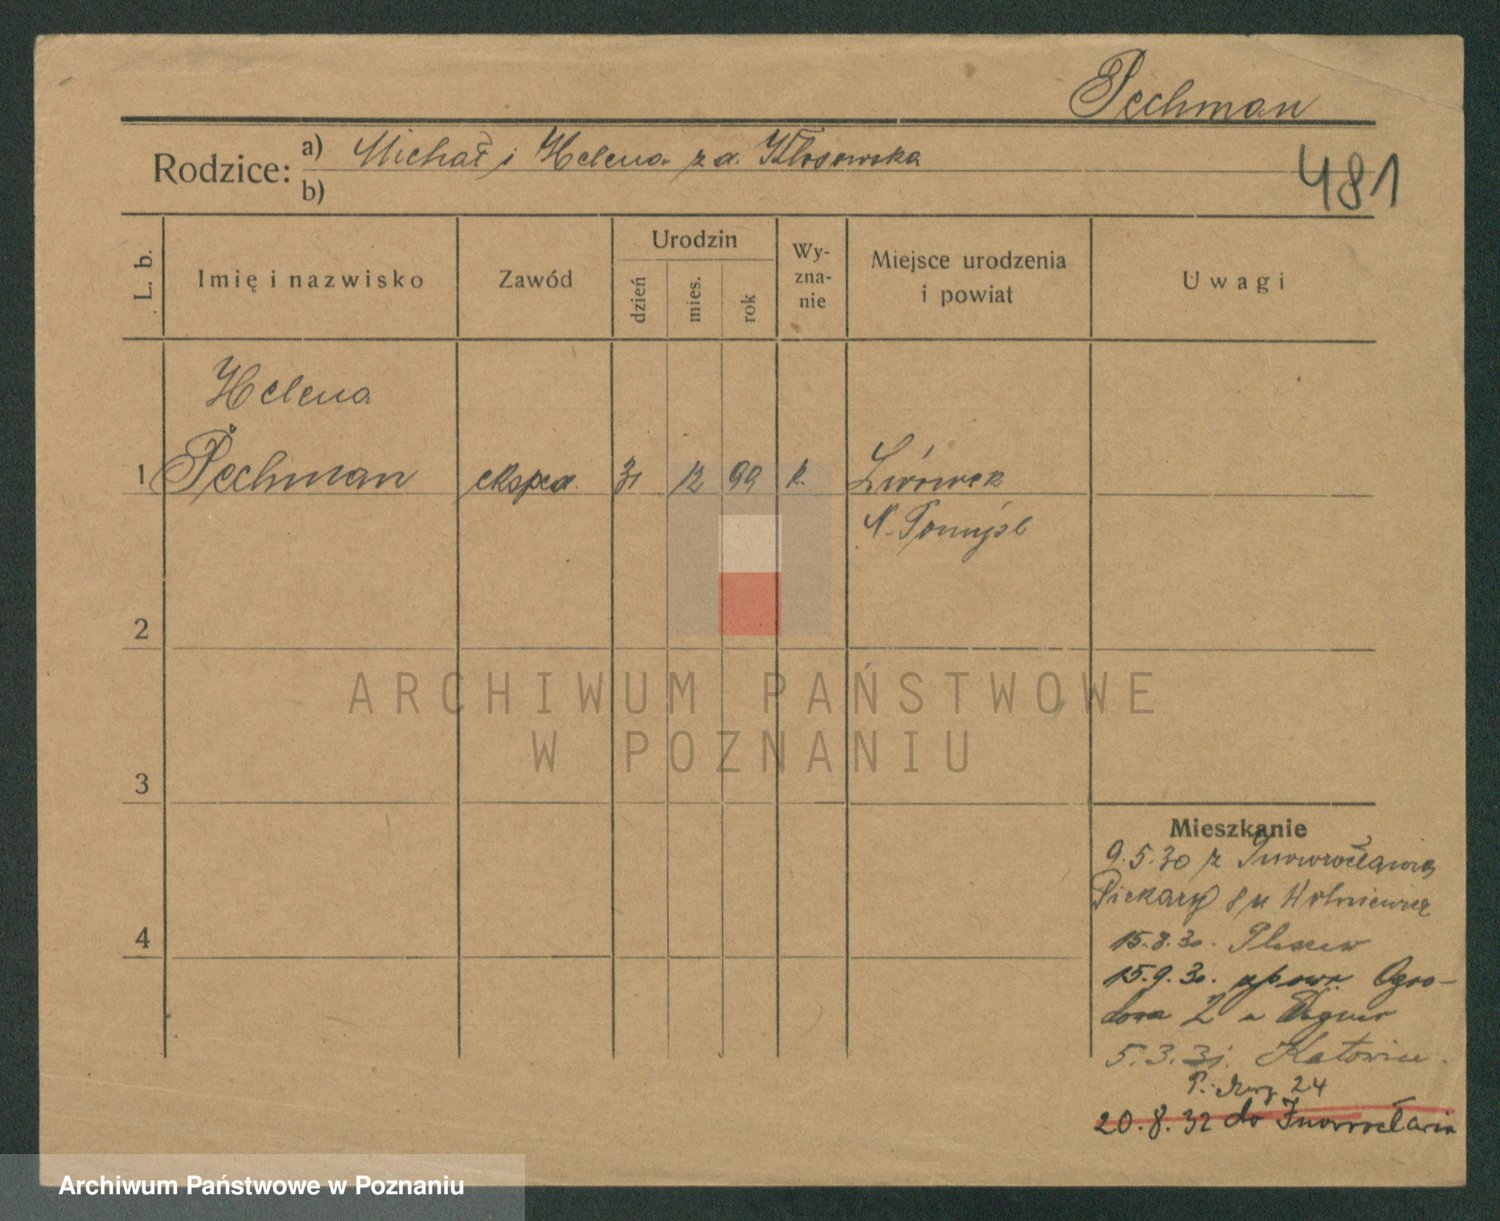 Pechman
Rodzice: a) Michał i Helena zd. Kłosowska
481
b)
L. b.
Imię i nazwisko
Zawód
Urodzin
dzień
mies.
rok
Wy-
zna-
nie
Miejsce urodzenia
i powiat
Uwagi
Helena
1 Pechman eksped. 31 12 99 k. Lwówek
N. Tomyśl
2
ARCHIWUM PAŃSTWOWE
W POZNANIU
3
Mieszkanie
9.5.30 z Inowrocławia
Piekary 8 u
4
15.8.30. Pleszew
15.9.30. Ogro-
dowa 2 u
5.3.31. Katowice
24
20.8.32 do Inowrocławia
Archiwum Państwowe w Poznaniu